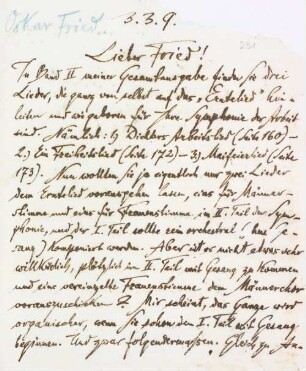 Oskar Fried.
3.3.9.
231
Lieber Fried!
In Band II meiner Gesamtausgabe finden Sie drei
Lieder, die ganz von selbst auf das „Erntelied" hin-
leiten und wie geboren für Ihre Symphonie der Arbeit
sind. Nämlich: 1) Dichters Arbeitslied (Seite 160) –
2.) Ein Freiheitslied (Seite 172) – 3) Maifeierlied (Seite
173). Nun wollten Sie ja eigentlich nur zwei Lieder
dem Erntelied vorausgehen lassen, eins für Männer-
stimme und eins für Frauenstimme, im II. Teil der Sym-
phonie, und der I. Teil sollte rein orchestral ohne Ge-
sang komponiert werden. Aber ist es nicht etwas sehr
willkürlich, plötzlich im II. Teil mit Gesang zu kommen
und eine vereinzelte Frauenstimme dem Männerchor
vorauszuschicken? Mir scheint, das Ganze wird
organischer, wenn Sie schon den I. Teil mit Gesang
beginnen. Und zwar folgendermassen. Gleich zu An-